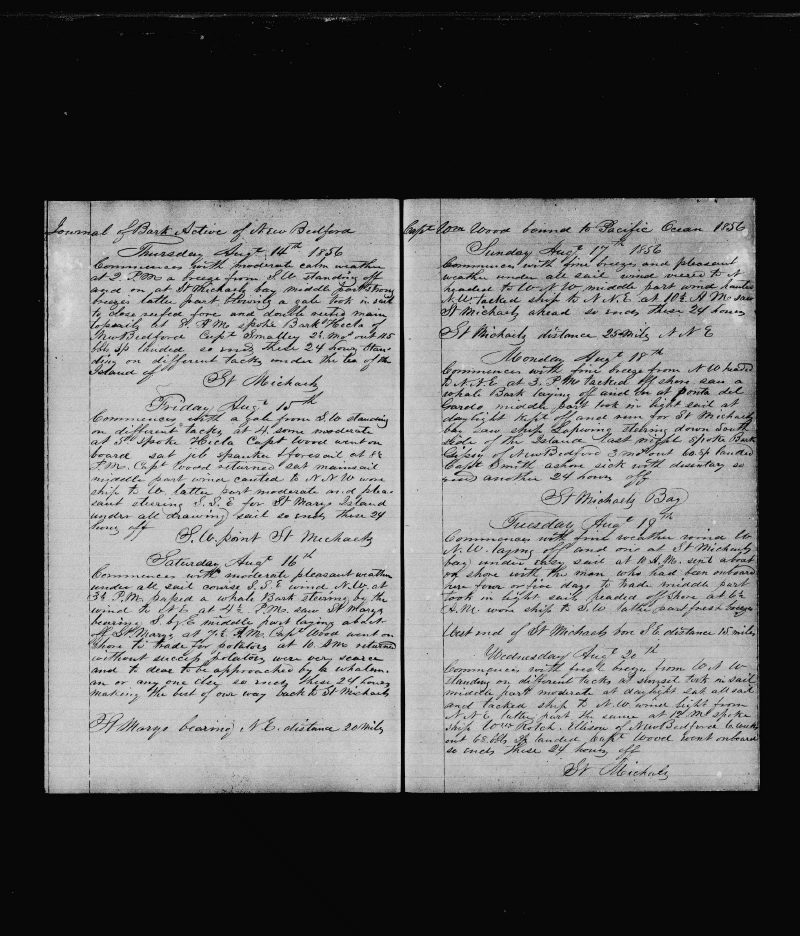 Journal of Bark Active of New Bedford
Thursday Augt 14th 1856
Commences with moderate calm weather
at 2. P.M a breeze from S.W standing off
and on at St Michaels bay middle part strong
breeze latter part blowing a gale took in sail
to close reefed fore and double reefed main
topsails at 8. A Mo spoke Bark Hecla of
New Bedford Capt Smalley 2½ mo out 115
bbls Sp landed so ends these 24 hours stan-
ding on different tacks under the lee of the
Island of
St Michaels
Friday Augt 15th
Commences with a gale from S.W standing
on different tacks at 4 some moderate
at 5 spoke Hecla Capt Wood went on
board sat jib spanker & foresail at 8½
P.M. Capt Wood returned sat mainsail
middle part wind canted to N N W wore
ship to W. latter part moderate and plea-
sant steering S.S.E for St Marys Island
under all drawing sail so ends these 24
hours off
S.W. point St Michaels
Saturday Augt 16th
Commences with moderate pleasant weather
under all sail course S.S.E wind N.W. at
3½ P.M. passed a whale Bark steering by the
wind to at 4½ P.M. saw St Marys
bearing S. by E middle part laying about
off St Marys at 7½ A.M. Capt Wood went on
shore to trade for potatoes at 10. A Mo returned
without success potatoes were very scarce
and to dear to be approached by a whalem-
an or any one else so ends these 24 hours
making the best of our way back to St Michaels
St Marys bearing N E. distance 20 miles
Capt Wm Wood bound to Pacific Ocean 1856
Sunday Augt 17th 1856
Commences with fine breeze and pleasant
weather under all sail wind veered to N
headed to W N W middle part wind hauled
N.W. tacked ship to N.N.E. at 10½ A Mo saw
St Michaels ahead so ends these 24 hours
St Michaels distance 25 miles N N E
Monday Augt 18th
Commences with fine breeze from N W headed
to N.N.E at 3. P.M tacked off shore saw a
whale Bark laying off and on at ponta del
Gardo middle part took in light sail at
daylight kept of and run for St Michaels
bay saw ship Lapwing steering down South
side of the Island last night spoke Bark
Gipsey of New Bedford 3 mo out 60 sp landed
Capt Smith ashore sick with desentary so
ends another 24 hours off
St Michaels Bay
Tuesday Augt 19th
Commences with fine weather wind W.
N.W. laying off and on at St Michaels
bay under easy sail at 10 A.M. sent a boat
on shore with the man who had been onboard
four or five days to trade middle part
took in light sail headed off shore at 6½
A.M. wore ship to S.W latter part fresh breeze
West end of St Michaels bore S.E. distance 15 miles
Wednesday Augt 20th
Commences with fresh breeze from W.N.W
standing on different tacks at sunset took in sail
middle part moderate at daylight sat all sail
and tacked ship to N.W. wind light from
N.N.E. latter part the same at 12 Mo spoke
ship Wm Rotch. Ellison of New Bedford
out 60 bbls Sp landed Capt Wood went onboard
so ends these 24 hours off
St Michaels